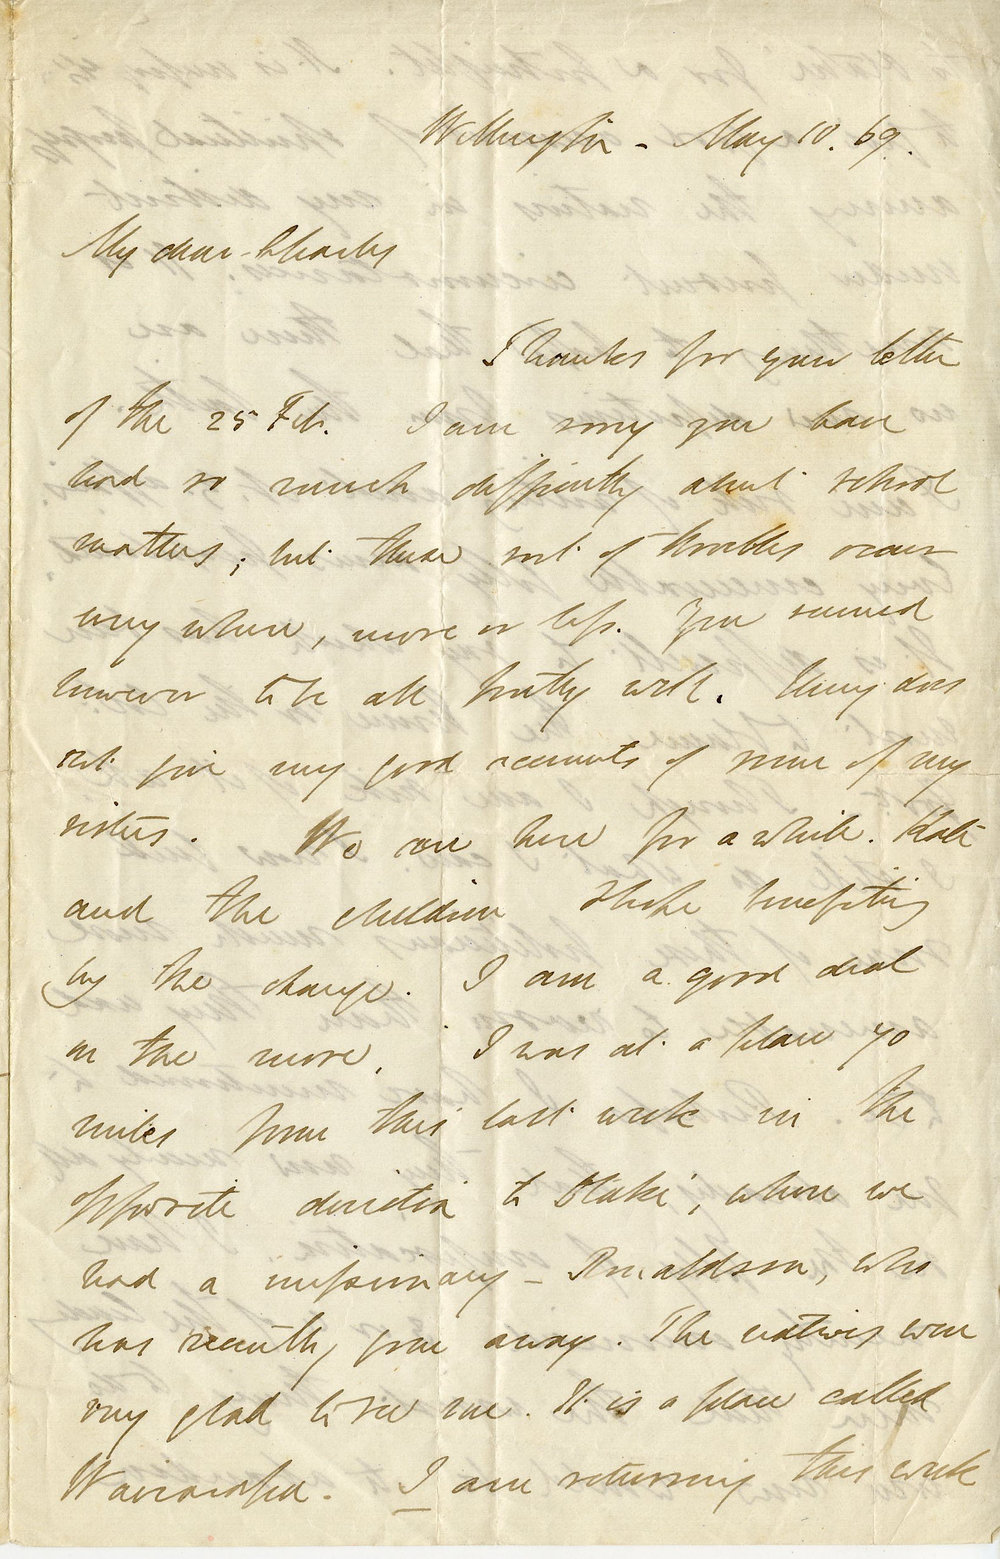 Wellington - May 10. 69.
My dear Charles
Thanks for your letter
of the 25 Feb. I am sorry you have
had so much difficulty about school
matters; but these sort of troubles occur
every where, more or less. You seemed
however to be all pretty well. Henry does
not give very good accounts of some of my
sisters. We are here for a while. Kate
and the children I hope benefiting
by the change. I am a good deal
on the move. I was at a place 70
miles from this last week in the
opposite direction to Otaki, where we
had a missionary - Ronaldson, who
has recently gone away. The natives were
very glad to see me. It is a place called
Wairarapa. I am returning this week